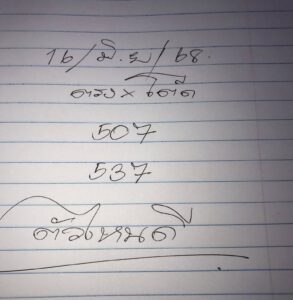 16/มิ.ย/68.
ตรง x โต๊ด
507
537
ตัวไหนดี